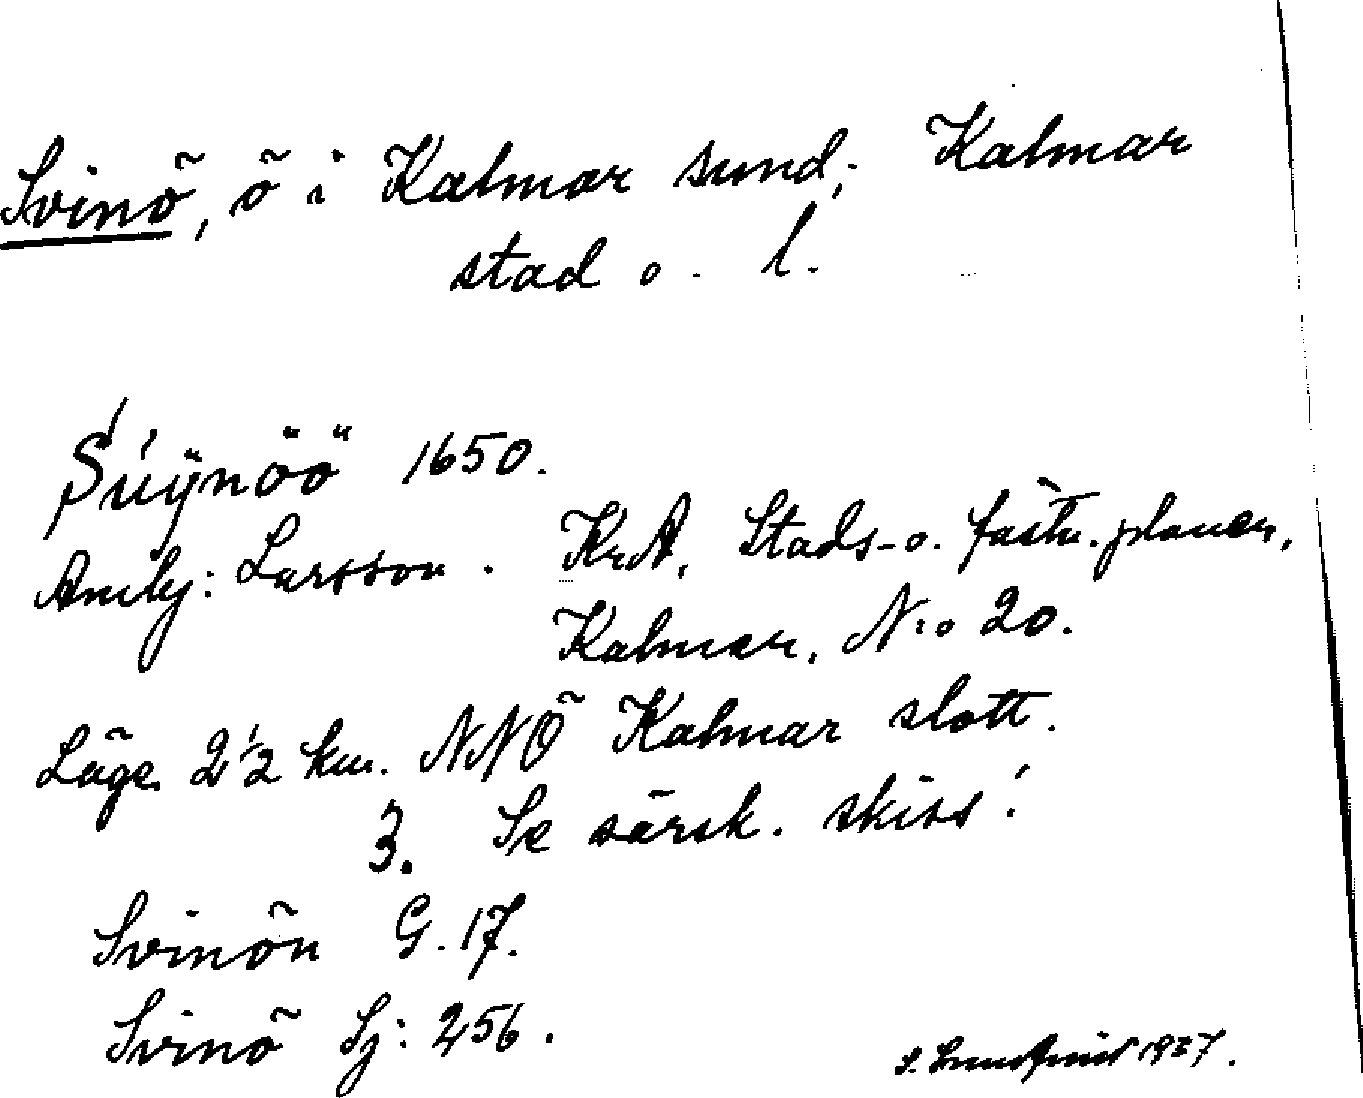 Svinö, ö i Kalmar sund; Kalmar
stad o. l.
Súÿnöö 1650.
Andg: Larsson. KrA, Stads- o. fästn. planer,
Kalmar, N:o 20.
Läge 2 1/2 km. NNÖ Kalmar slott.
3. Se särsk. skiss!
Svinön G. 17.
Svinö Sj: 256.
1927.